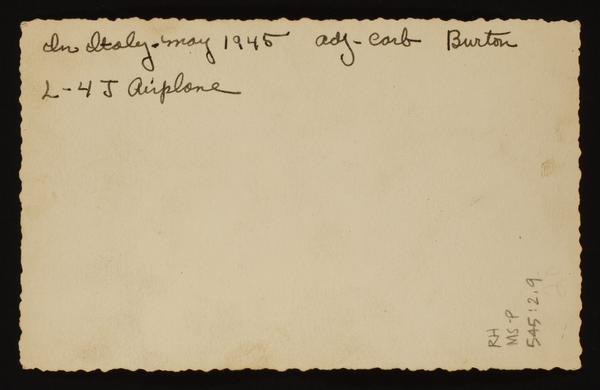 In Italy - May 1945 adj - carb Burton
L-4 J Airplane
RH
MS-P
545:2.9